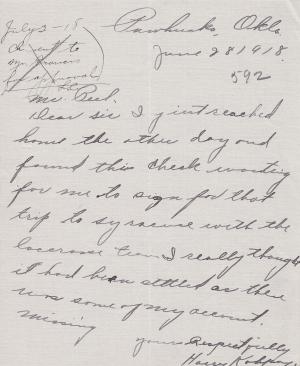 July 2-18
ck sent to
for approval
Pawhuska, Okla.
June 28 1918.
592
Mr. Peel.
Dear sir I just reached
home the other day and
found this check waiting
for me to sign for that
trip to syracuse with the
lacrosse team, I really thought
it had been settled as there
was some of my account.
missing
yours Respectfully
Harry